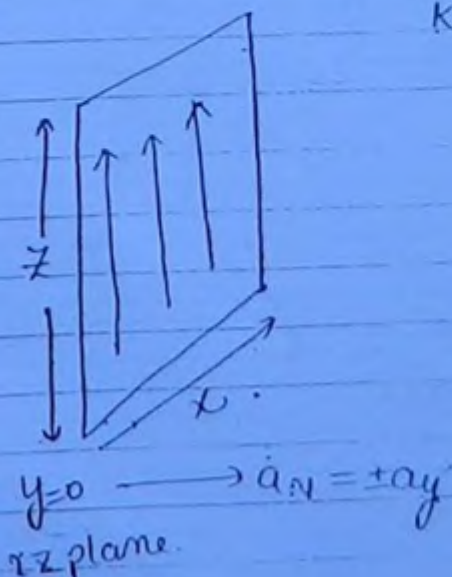 K
Z
x.
y=0 → aN = ±ay
xz plane.